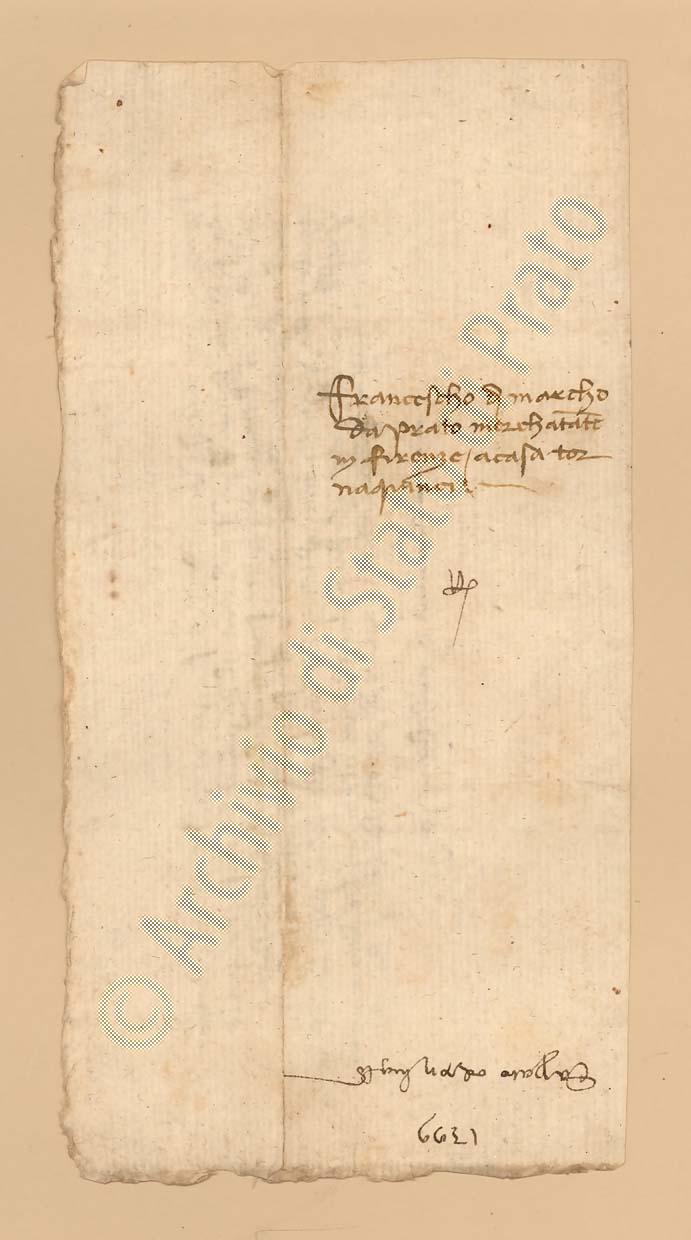 Francescho di marcho
da prato merchatāte
in firenze / a casa tor
naquinci
1399
© Archivio di Stato di Prato